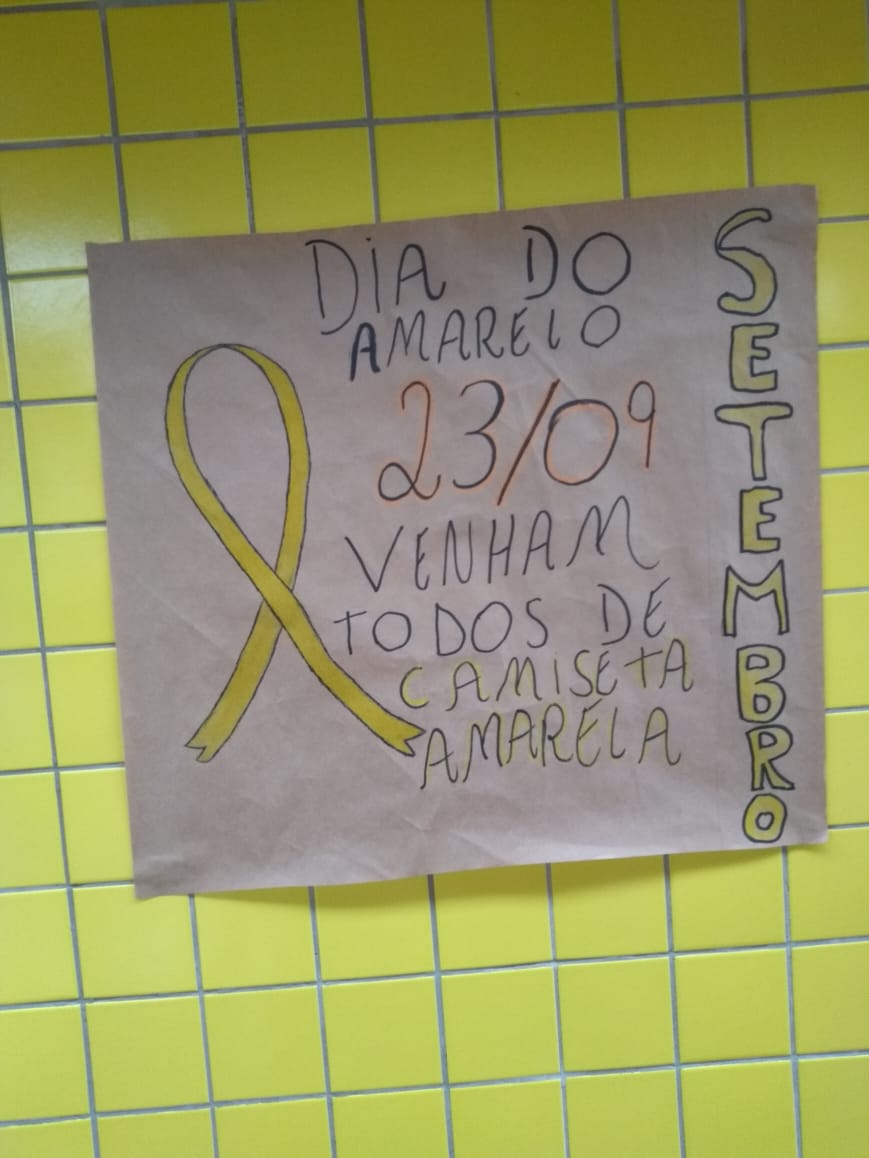 DiA DO
AMARELO
23/09
VENHAM
TODOS DE
CAMISETA
AMARELA
SETEMBRO